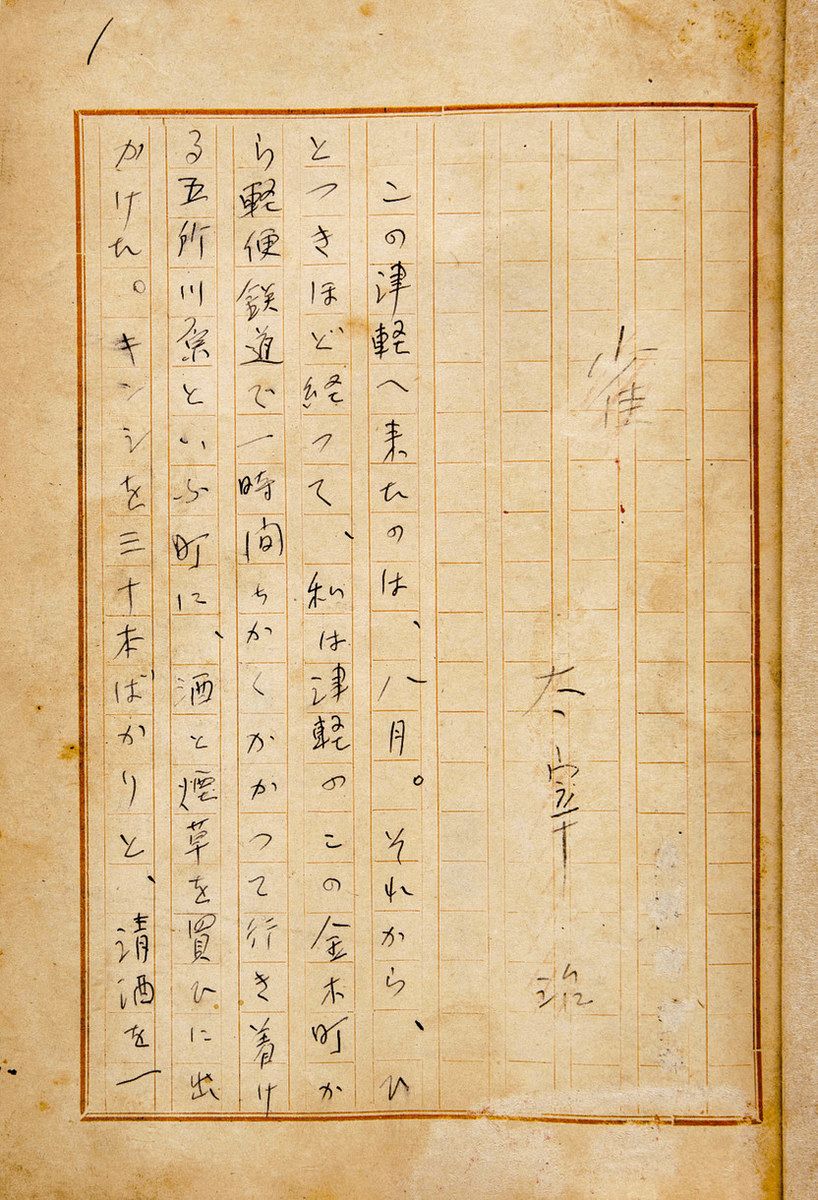 雀
太宰治
この津軽へ来たのは、八月。それから、ひ
とつきほど経つて、私は津軽のこの金木町か
ら軽便鉄道で一時間ちかくかかつて行き着け
る五所川原といふ町に、酒と煙草を買ひに出
かけた。キンシを三十本ばかりと、清酒を一